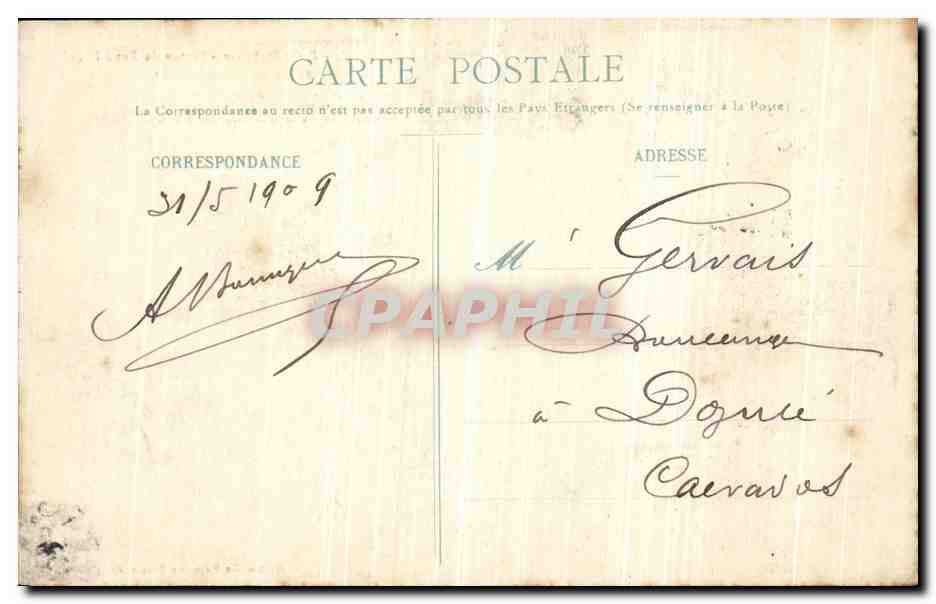 CARTE POSTALE
La Correspondance au recto n'est pas acceptée par tous les Pays Etrangers (Se renseigner à la Poste)
CORRESPONDANCE
31/5 1909
A
ADRESSE
M Gervais
à
Calvados
CPAPHIL